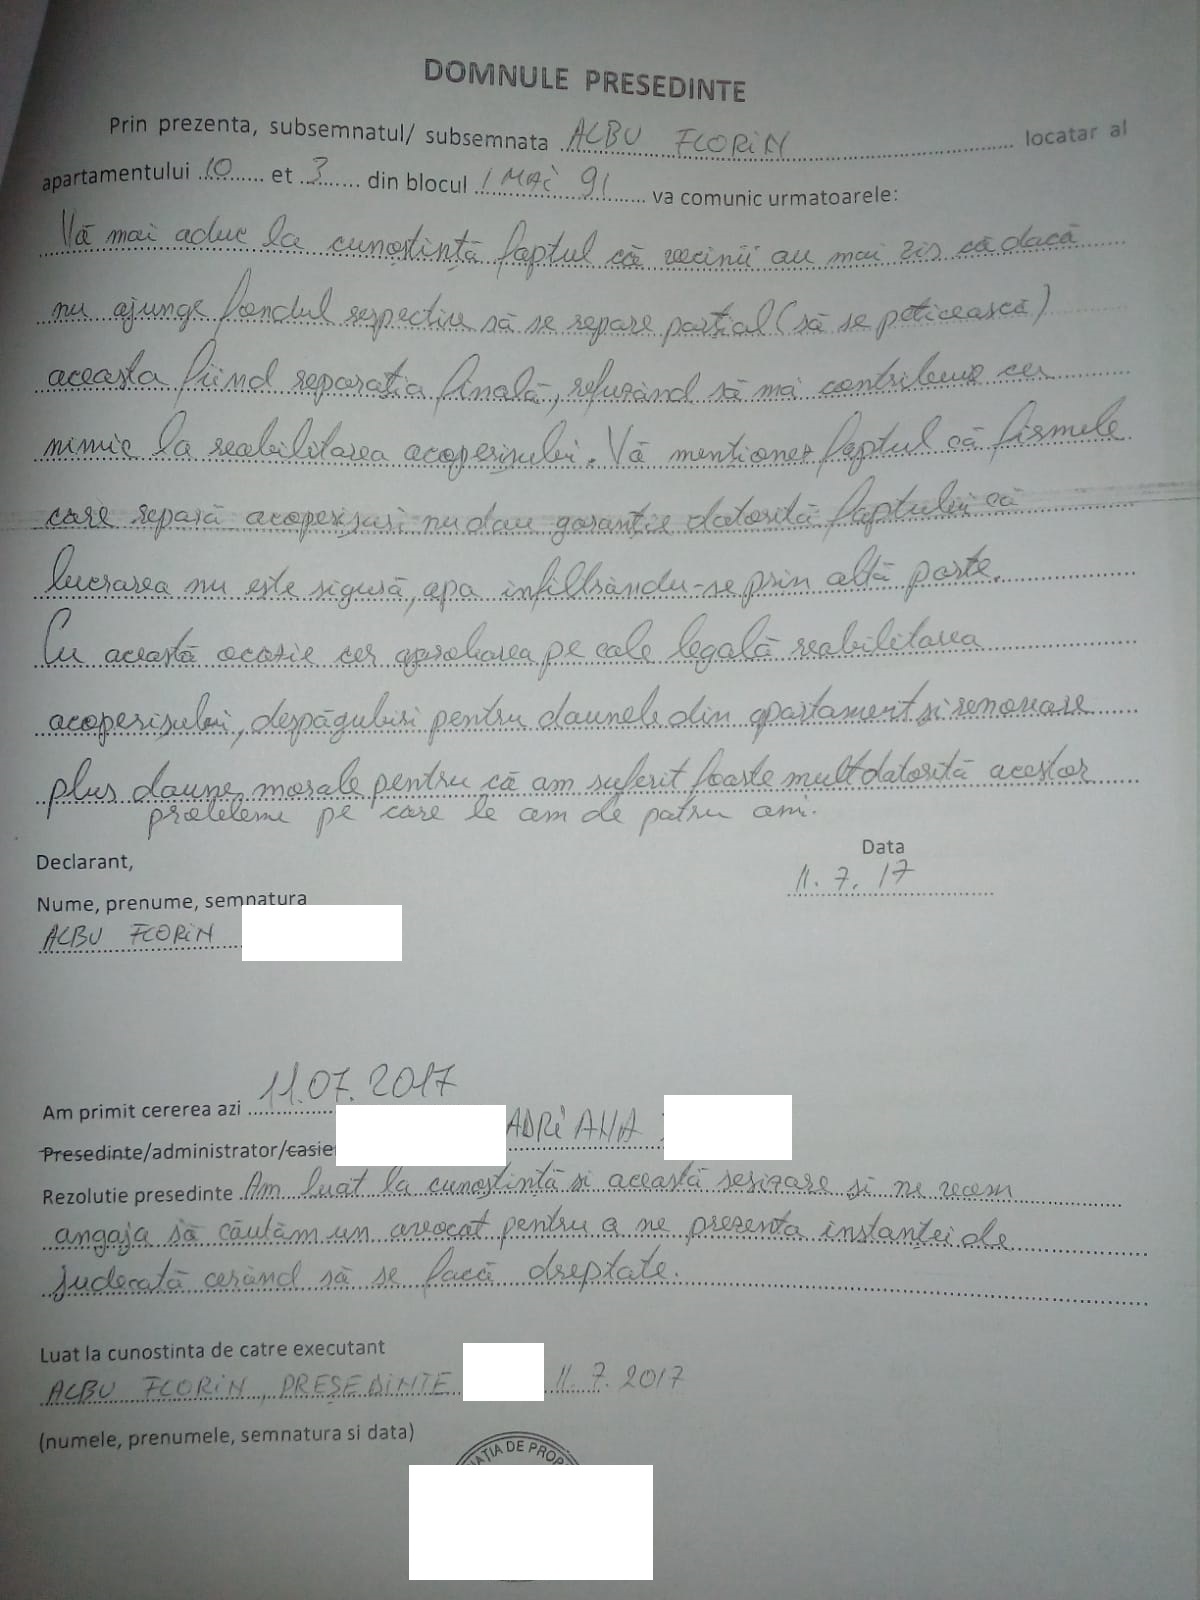 DOMNULE PRESEDINTE
Prin prezenta, subsemnatul/ subsemnata ALBU FLORIN locatar al
apartamentului 10 et 3 din blocul 1 MAI 91 va comunic urmatoarele:
Vă mai aduc la cunoștință faptul că vecinii au mai zis că dacă
nu ajunge fondul respectiv să se repare parțial (să se peticească)
aceasta fiind reparația finală, refuzând să mai contribuie cu
nimic la reabilitarea acoperișului. Vă menționez faptul că firmele
care repară acoperișuri nu dau garanție datorită faptului că
lucrarea nu este sigură, apa infiltrându-se prin altă parte.
Cu această ocazie cer aprobarea pe cale legală reabilitarea
acoperișului, despăgubiri pentru daunele din apartament și renovare
plus daune morale pentru că am suferit foarte mult datorită acestor
probleme pe care le am de patru ani.
Declarant,
Data
11.7.17
Nume, prenume, semnatura
ALBU FLORIN
Am primit cererea azi 11.07.2017
Presedinte/administrator/casie ADRIANA
Rezolutie presedinte Am luat la cunoștință și această sesizare și ne vom
angaja să căutăm un avocat pentru a ne prezenta instanței de
judecată cerând să se facă dreptate.
Luat la cunostinta de catre executant
ALBU FLORIN, PREȘEDINTE 11.7.2017
(numele, prenumele, semnatura si data)
AȚIA DE PROP